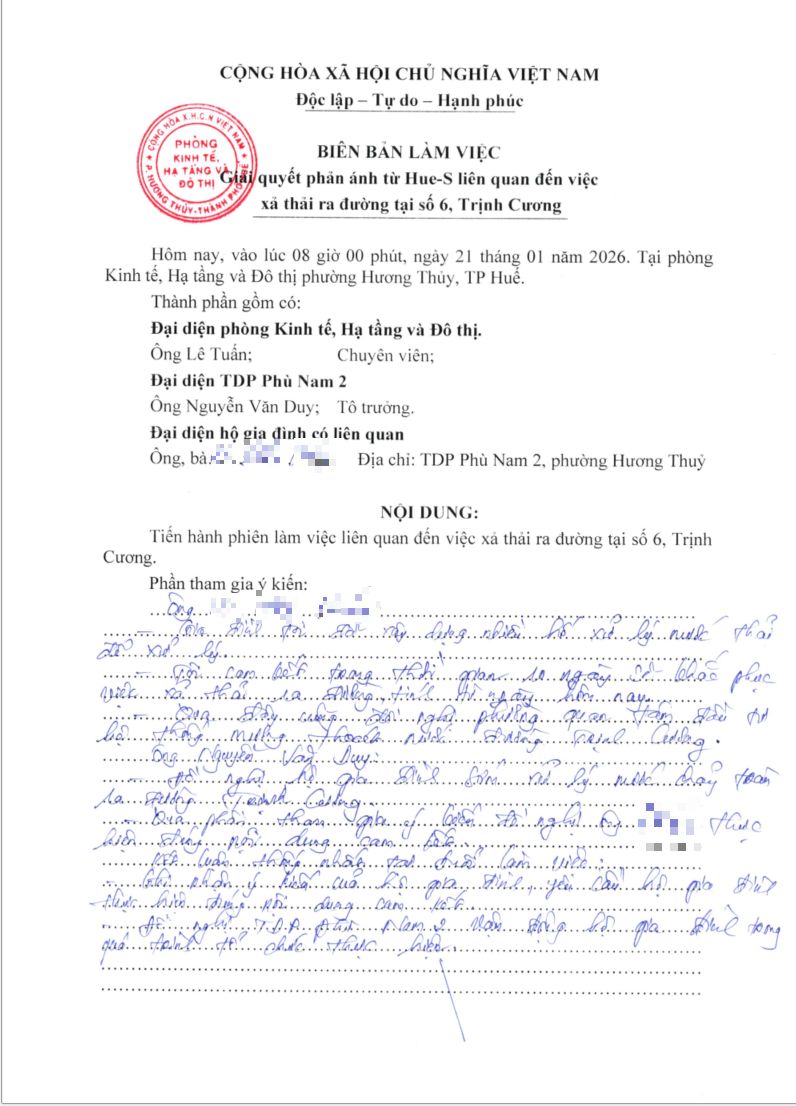 CỘNG HÒA XÃ HỘI CHỦ NGHĨA VIỆT NAM
Độc lập – Tự do – Hạnh phúc
CỘNG HÒA X.H.C.N VIỆT NAM
PHÒNG
KINH TẾ,
HẠ TẦNG VÀ
ĐÔ THỊ
P. HƯƠNG THỦY-THÀNH PHỐ HUẾ
BIÊN BẢN LÀM VIỆC
Giải quyết phản ánh từ Hue-S liên quan đến việc
xả thải ra đường tại số 6, Trịnh Cương
Hôm nay, vào lúc 08 giờ 00 phút, ngày 21 tháng 01 năm 2026. Tại phòng
Kinh tế, Hạ tầng và Đô thị phường Hương Thủy, TP Huế.
Thành phần gồm có:
Đại diện phòng Kinh tế, Hạ tầng và Đô thị.
Ông Lê Tuấn; Chuyên viên;
Đại diện TDP Phù Nam 2
Ông Nguyễn Văn Duy; Tổ trưởng.
Đại diện hộ gia đình có liên quan
Ông, bà: Địa chỉ: TDP Phù Nam 2, phường Hương Thuỷ
NỘI DUNG:
Tiến hành phiên làm việc liên quan đến việc xả thải ra đường tại số 6, Trịnh
Cương.
Phần tham gia ý kiến:
Ông
- Gia đình tôi đã xây dựng nhiều hố xử lý nước thải
để xử lý.
- Tôi cam kết trong thời gian 10 ngày sẽ khắc phục
việc xả thải ra đường tính từ ngày hôm nay.
- đây cũng đề nghị phường quan tâm đầu tư
hệ thống mương thoát nước đường Trịnh Cương.
Ông Nguyễn Văn Duy:
- Đề nghị hộ gia đình sớm xử lý nước chảy tràn
ra đường Trịnh Cương.
- Qua phần tham gia ý kiến đề nghị ông thực
hiện đúng nội dung cam kết.
Kết luận thống nhất tại buổi làm việc:
- Ghi nhận ý kiến của hộ gia đình, yêu cầu hộ gia đình
thực hiện đúng nội dung cam kết.
- Đề nghị TDP Phù Nam 2 vận động hộ gia đình trong
quá trình tổ chức thực hiện.